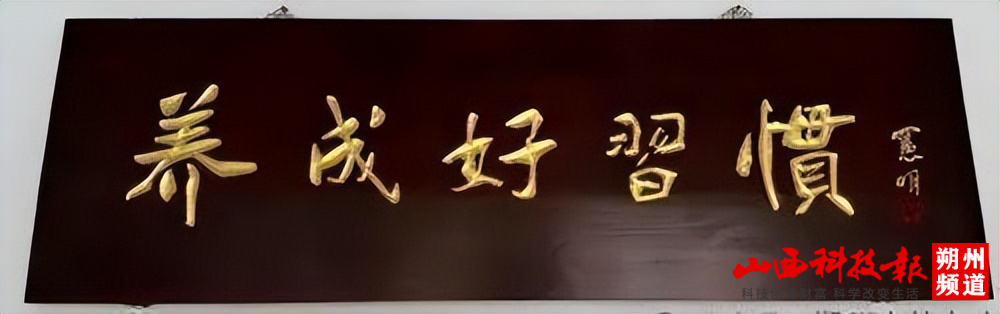 养成好習慣
憲明
山西科技报
朔州
频道
科学改变生活